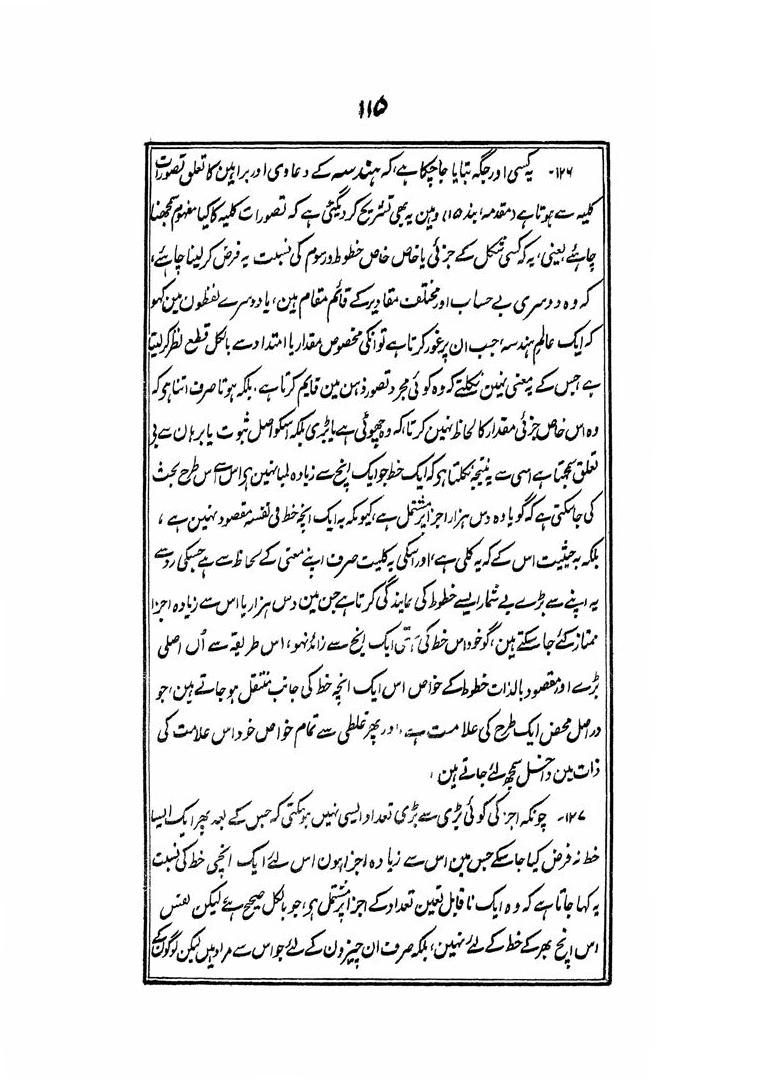 ۱۱۵
۱۲۶۔ یہ کسی اور جگہ بتایا جا چکا ہے، کہ ہندسہ کے دعاوی اور براہین کا تعلق تصورات
کلیہ سے ہوتا ہے (مقدمہ، بند ۱۵) وہین یہ بھی تشریح کر دیگئی ہے کہ تصورات کلیہ کا کیا مفہوم سمجھنا
چاہئے یعنی، یہ کہ کسی شکل کے جزئی یا خاص خاص خطوط و رسوم کی نسبت یہ فرض کر لینا چاہئے،
کہ وہ دوسری بے حساب اور مختلف مقادیر کے قائم مقام ہین، یا دوسرے لفظون مین کہو
کہ ایک عالم ہندسہ، جب ان پر غور کرتا ہے تو انکی مخصوص مقدار یا امتداد سے بالکل قطع نظر کر لیتا
ہے جس کے معنی نہین نکلتے کہ وہ کوئی مجرد تصور ذہن مین قایم کرتا ہے، بلکہ ہوتا صرف اتنا ہی کہ
وہ اس خاص جزئی مقدار کا لحاظ نہین کرتا، کہ وہ چھوٹی ہے یا بڑی بلکہ اسکو اصل ثبوت یا برہان سے بے
تعلق سمجھتا ہے اسی سے یہ نتیجہ نکلتا ہی کہ ایک خط جو ایک انچ سے زیادہ لمبا نہین ہی اس سے اس طرح بحث
کی جاسکتی ہے کہ گویا وہ دس ہزار اجزا پر مشتمل ہے، کیونکہ یہ ایک انچہ خط فی نفسہ مقصود نہین ہے،
بلکہ بہ حیثیت اس کے کہ یہ کلی ہے، اور اسکی یہ کلیت صرف اپنے معنی کے لحاظ سے ہے جسکی رو سے
یہ اپنے سے بڑے بے شمار ایسے خطوط کی نمایندگی کرتا ہے جن مین دس ہزار یا اس سے زیادہ اجزا
ممتاز کئے جا سکتے ہین، گو خود اس خط کی ایک انچ سے زائد نہو، اس طریقہ سے اُن اصلی
بڑے اور مقصود بالذات خطوط کے خواص اس ایک انچہ خط کی جانب منتقل ہو جاتے ہین، جو
دراصل محض ایک طرح کی علامت ہے، اور پھر غلطی سے تمام خواص خود اس علامت کی
ذات مین داخل سمجھ لئے جاتے ہین،
۱۲۷۔ چونکہ اجزا کی کوئی بڑی سے بڑی تعداد ایسی نہین ہو سکتی کہ جس کے بعد پھر ایک ایسا
خط نہ فرض کیا جا سکے جس مین اس سے زیادہ اجزا ہون اس لئے ایک انچی خط کی نسبت
یہ کہا جاتا ہے کہ وہ ایک ناقابل تعین تعداد کے اجزا پر مشتمل ہو، جو بالکل صحیح ہے لیکن نفس
اس انچ بھر کے خط کے لئے نہین، بلکہ صرف ان چیزون کے لئے جو اس سے مراد ہیں لیکن لوگون کے